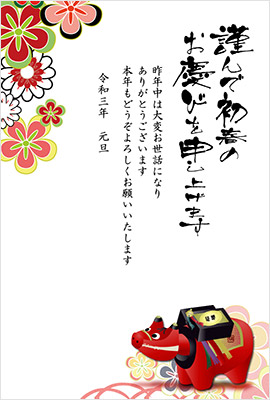 謹んで初春の
お慶びを申し上げます
昨年中は大変お世話になり
ありがとうございます
本年もどうぞよろしくお願いいたします
令和三年　元旦